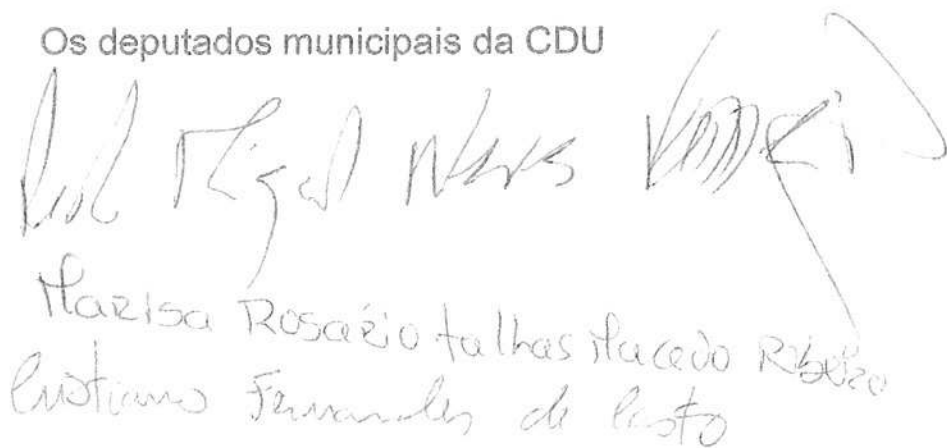 Os deputados municipais da CDU
Miguel Neves
Marisa Rosário talhas Macedo Ribeiro
Cristiano Fernandes de Castro